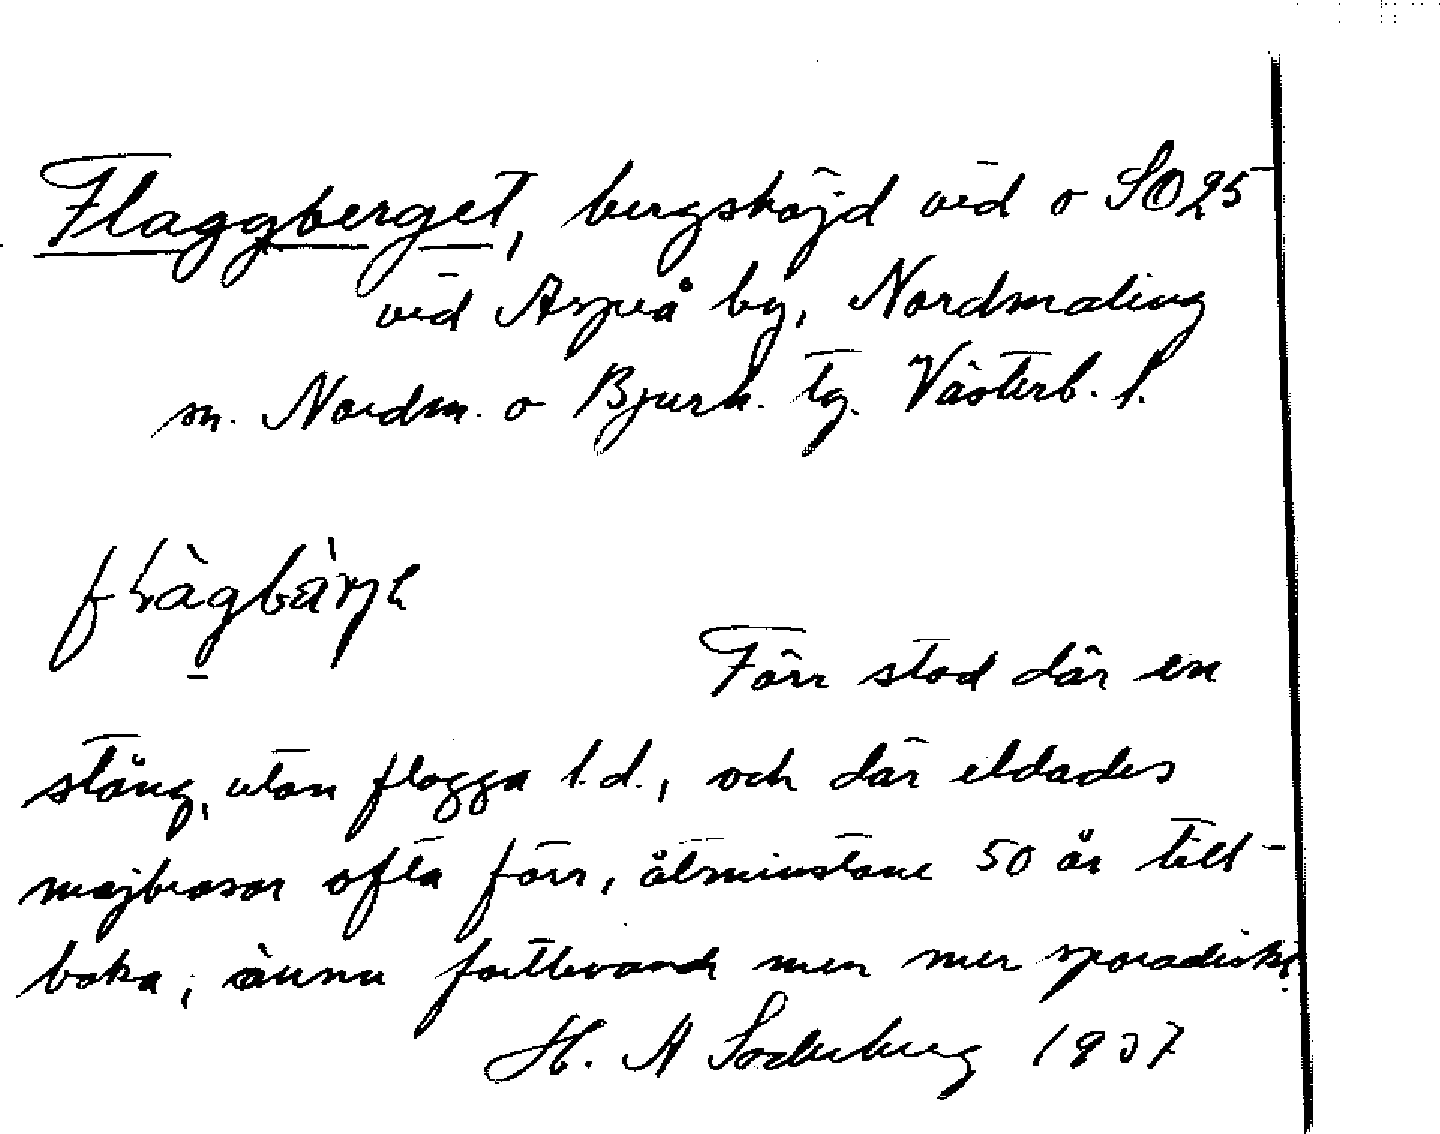 Flaggberget, bergshöjd vid o SO 25
vid Aspeå by, Nordmaling
sn. Nordm. o Bjurh. tg. Västerb. l.
Förr stod där en
stång, utan flagga l.d., och där eldades
majbrasor ofta förr, åtminstone 50 år till-
baka, ännu fortlevande men mer sporadiskt.
H. A Söderberg 1937